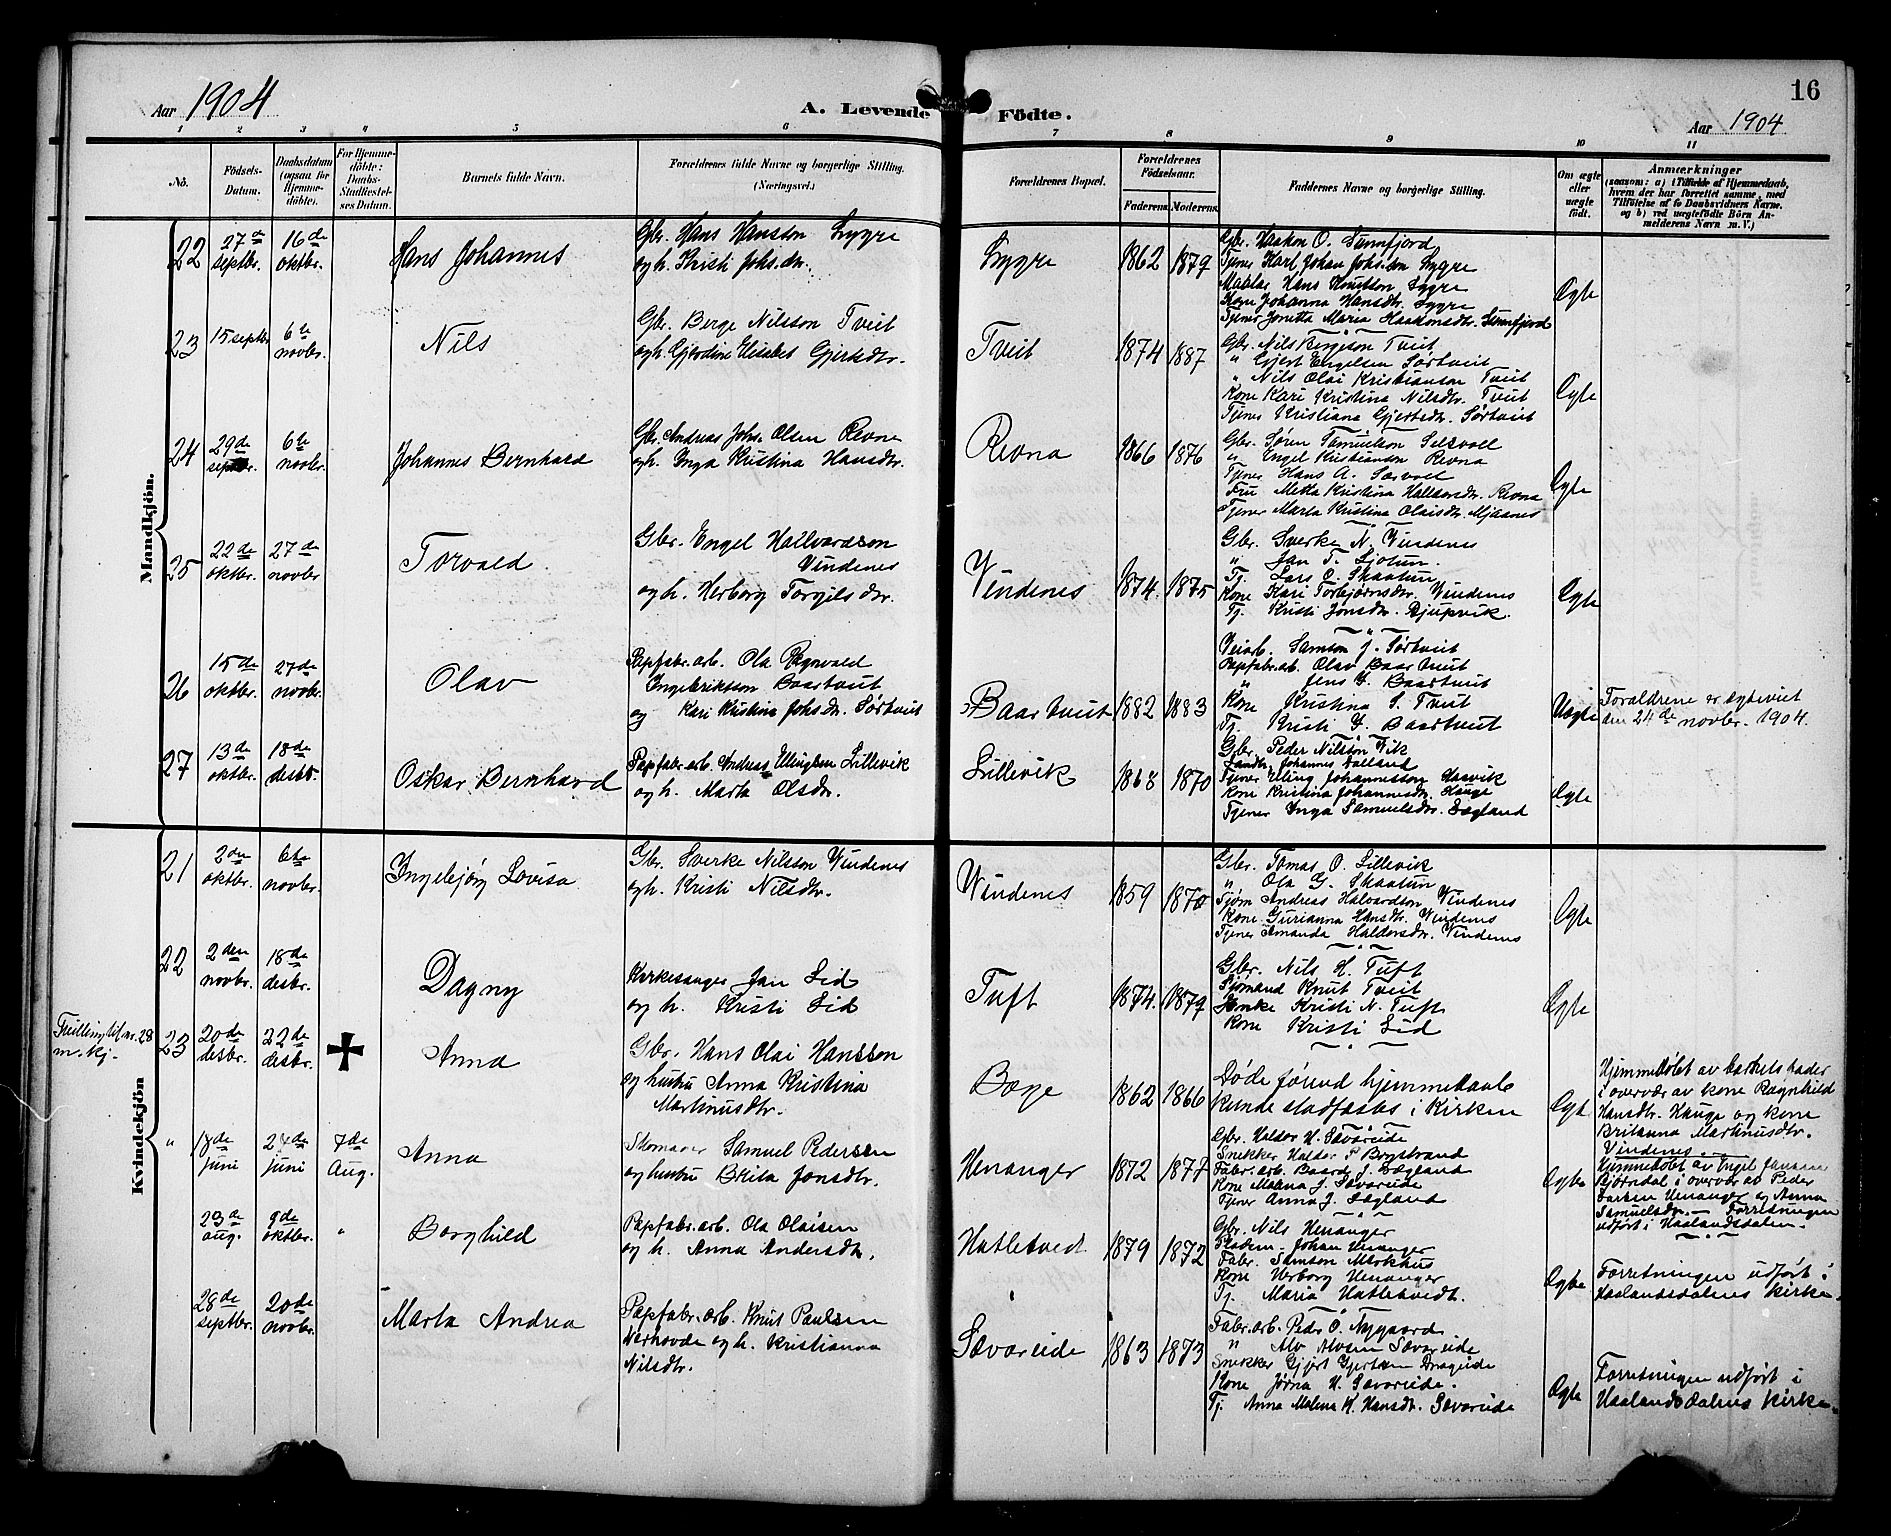 Aar 1904
A. Levende Födte.
16
Aar 1904
1 2 3 4 5 6 7 8 9 10 11
No.
Födsels-Datum.
Daabsdatum (ogsaa for Hjemme-döbte).
For Hjemme-döbte: Daabs-Stadfæstel-ses Datum.
Barnets fulde Navn.
Forældrenes fulde Navne og borgerlige Stilling. (Næringsvei.)
Forældrenes Bopæl.
Forældrenes Födselsaar.
Faderens. Moderens.
Faddernes Navne og borgerlige Stilling.
Om ægte eller uægte födt.
Anmærkninger
(saasom: a) i Tilfælde af Hjemmedaab, hvem der har forrettet samme, med Tilföielse af to Daabsvidners Navne, og b) ved uægtefödte Börn An-melderens Navn m. V.)
Mandkjön.
22
27de septbr.
16de oktbr.
Hans Johannes
Gbr. Hans Hansson Lygre
og h. Kristi Johs.dr.
Lygre
1862 1879
Gbr. Haakon O. Sunnfjord
Tjener Karl Johan Johs.son Lygre
Matlas Hans Knutson Lygre
Kone Johanna Hansdtr. Lygre
Tjener Jonetta Maria Haakonsdtr. Sunnfjord
Ægte
23
15 septbr
6te novbr.
Nils
Gbr. Berge Nilsson Tveit
og h. Gjerdine Elisabet Gjertsdtr.
Tveit
1874 1887
Gbr. Nils Bergeson Tveit
" Gjert Engelsen Sørtveit
" Nils Olai Kristianson Tveit
Kone Kari Kristina Nilsdtr. Tveit
Tjener Kristiana Gjertsdtr. Sørtveit
Ægte
24
29de septbr.
6te novbr.
Johannes Bernhard
Gbr. Andreas Johs. Olsen Revne
og h. Inga Kristina Hansdtr.
Revna
1866 1876
Gbr. Søren Samuelson Selsvoll
" Engel Kristianson Revna
Tjener Hans A. Særvoll
Fru Metta Kristina Haldorsdtr. Revna
Tjener Marta Kristina Olaisdtr. Mjaanes
Ægte
25
22de oktbr.
27de novbr
Torvald
Gbr. Engel Hallvardson
Vindenes
og h. Herborg Torgilsdtr.
Vindenes
1874. 1875
Gbr. Sverke N. Vindenes
" Jan T. Ljotun.
Tj. Lars O. Skaatun
Kone Kari Torbjørnsdtr. Vindenes
Tj. Kristi Jonsdtr. Djupevik.
Ægte
26
15de oktbr.
27de novbr.
Olav
Papfabr.arb. Ola Ragnvald
Ingebriktson Baartveit
og Kari Kristina Johs.dr. Sørtveit
Baartveit
1882 1883
Veiarb. Samson J. Sørtveit
Papfabr.arb. Olav Baartveit
" Jens Y. Baartveit
Kone Kristina S. Tveit
Tj. Kristi Y. Baartveit
Uægte
Foraldrene er ægteviet
den 24de novbr. 1904.
27
13de oktbr.
18de desbr.
Oskar Bernhard
Papfabr.arb. Andreas Ellingsen Lillevik
og h. Marta Olsdr.
Lillevik
1868 1870
Gbr. Peder Nilsson Vik
Landh. Johannes Dalland
Tjener Elling Johannesson Haavik
Kone Kristina Johannesdtr. Hauge
Tjener Inga Samuelsdtr. Ægland
Ægte
Kvindekjön
21
2den oktbr.
6te novbr.
Ingebjørg Lovisa
Gbr. Sverke Nilsson Vindenes
og h. Kristi Nilsdtr.
Vindenes
1859 1870
Gbr. Tomas O. Lillevik
" Ola G. Skaatun
Tjener Andreas Halvardson Vindenes
Kone Gurianna Hansdtr. Vindenes
Tjener Amanda Haldorsdtr. Vindenes
Ægte
22
2den novbr.
18de desbr.
Dagny
Kirkesanger Jan Lid
og h. Kristi Lid
Tuft
1874. 1879
Gbr. Nils H. Tuft
Sjømand Knut Tveit
Enke Kristi N. Tuft
Kone Kristi Lid
Ægte
Tvilling til nr. 28
m.kj.
23
20de desbr.
22de desbr.
Anna
Gbr. Hans Olai Hansson
og hustru Anna Kristina
Martinusdtr.
Boge
1862 1866
Døde førend hjemmedaab
kunde stadfæstes i Kirken
Ægte
Hjemmedøbt av barnets fader
i overvær av kone Ragnhild
Hansdtr. Hauge og kone
Britanna Martinusdtr.
Vindenes.
"
18de juni
24de juni
7de Aug.
Anna
Skomager Samuel Pedersen
og hustru Brita Jonsdtr.
Henanger
1872 1877
Gbr. Haldor H. Sævareide
Snekker Haldor P. Bogstrand
Fabr.arb. Baard J. Ægland
Kone Malena J. Sævareide
Tjener Anna J. Ægland
Ægte
Hjemmedøbt av Engel Jansen
Bjørndal i overvær av Peder
Larsen Henanger og Anna
Samuelsdtr. - Forretningen
udført i Haalandsdalen.
23de aug.
9de oktbr.
"
Borghild
Papfabr.arb. Ola Olaisen
og h. Anna Andersdtr.
Hatletvedt
1879 1872
Gbr. Nils Henanger
Johan Henanger
Fabr. Samson Markhus
Kone Herborg Henanger
Tj. Maria Hatletvedt.
Ægte
Forretningen udført i
Haalandsdalens Kirke.
28de septbr.
20de novbr.
Marta Andrea
Papfabr.arb. Knut Paulsen
Værhovde og h. Kristianna
Nilsdtr.
Sævareide
1863 1873
Fabr.arb. Peder O. Nygaard
" Alv Alvsen Sævareide
Snekker Gjert Gjertsen Drageide
Kone Jørna H. Sævareide.
Tj. Anna Malena K. Hansdtr. Sævareide
Ægte
Forretningen udført i
Haalandsdalens Kirke.